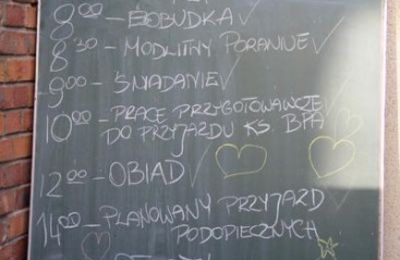 8:00 – POBUDKA ✓
8:30 – MODLITWY PORANNE ✓
9:00 – ŚNIADANIE ✓
10:00 – PRACE PRZYGOTOWAWCZE
DO PRZYJAZDU KS. BPA ✓
12:00 – OBIAD ✓
14:00 – PLANOWANY PRZYJAZD
PODOPIECZNYCH